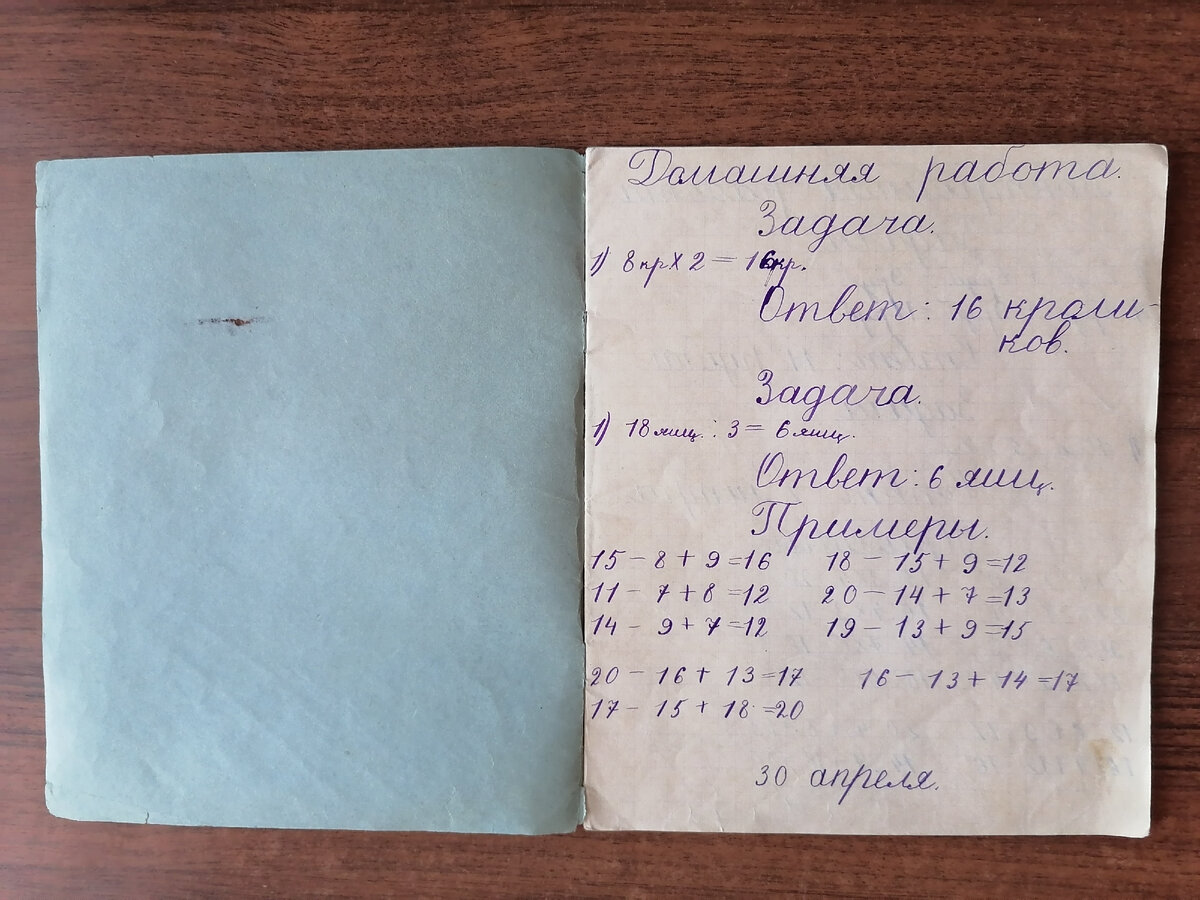 Домашняя работа.
Задача.
1) 8 кр х 2 = 16 кр.
Ответ: 16 кроли-
ков.
Задача.
1) 18 ящ. : 3 = 6 ящ.
Ответ: 6 ящ.
Примеры.
15 - 8 + 9 = 16 18 - 15 + 9 = 12
11 - 7 + 8 = 12 20 - 14 + 7 = 13
14 - 9 + 7 = 12 19 - 13 + 9 = 15
20 - 16 + 13 = 17 16 - 13 + 14 = 17
17 - 15 + 18 = 20
30 апреля.